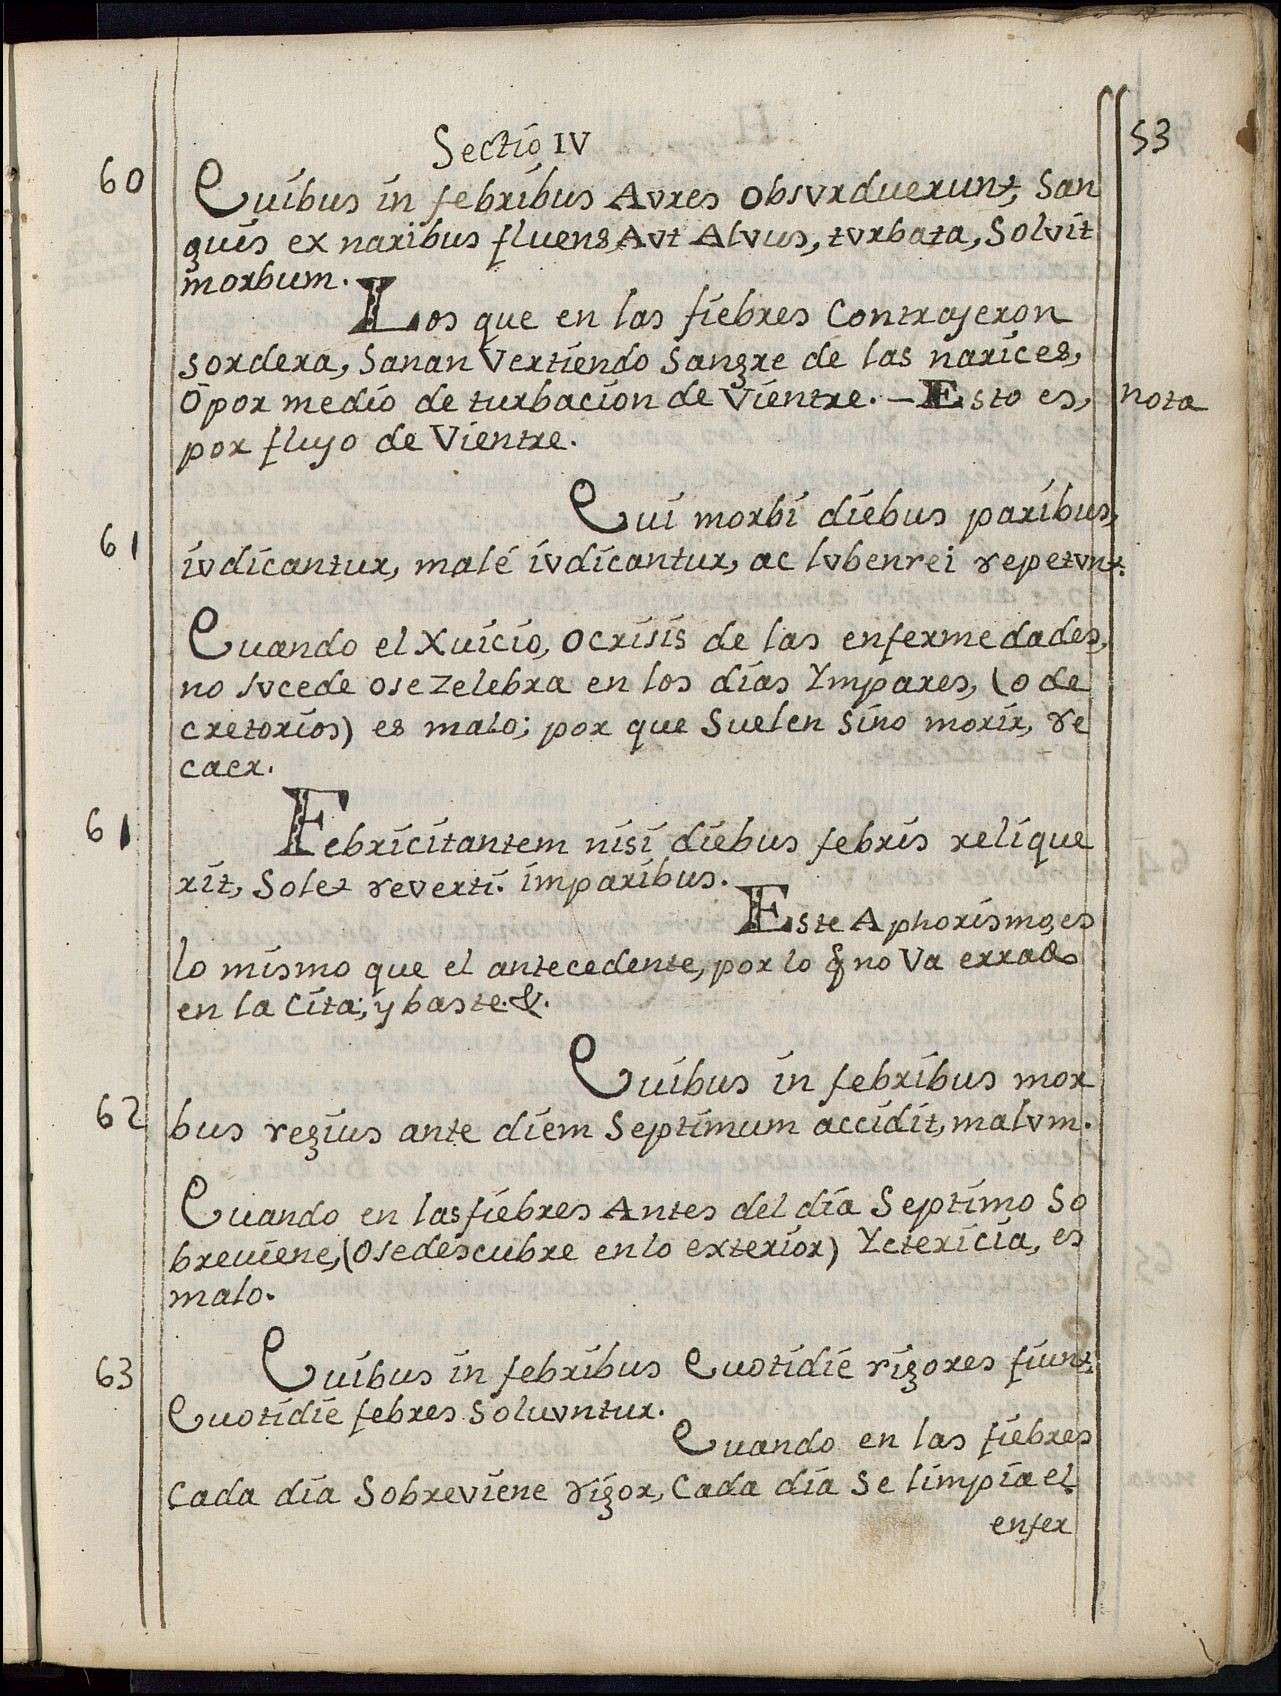 Sectio IV
53
60
Quibus in febribus Avres obsvrduerunt, San
guis ex naribus fluens, Avt Alvus, tvrbata, Solvit
morbum.
Los que en las fiebres Contrajeron
sordera, Sanan Vertiendo Sangre de las narices,
O por medio de turbacion de Vientre. – Esto es,
nota
por flujo de Vientre.
Qui morbi diebus paribus,
61
ivdicantur, malé ivdicantur, ac lvbenrei repetvnt.
Quando el Xuicio, o crisis de las enfermedades,
no svcede o se zelebra en los dias Ympares, (o de
cretorios) es malo; por que Suelen sino morir, re
caer.
61
Febricitantem nisi diebus febris relique
rit, Solet reverti. imparibus.
Este Aphorismo, es
lo mismo que el antecedente, por lo q̃ no Va errado
en la Cita; y baste. &.
Quibus in febribus mor
62
bus regius ante diem Septimum accidit, malvm.
Quando en las fiebres Antes del dia Septimo So
breuiene, (o se descubre en lo exterior) Yctericia, es
malo.
63
Quibus in febribus Quotidie rigores fiunt,
Quotidie febres Soluvntur.
Quando en las fiebres
Cada dia Sobreviene rigor, Cada dia Se limpia el
enfer